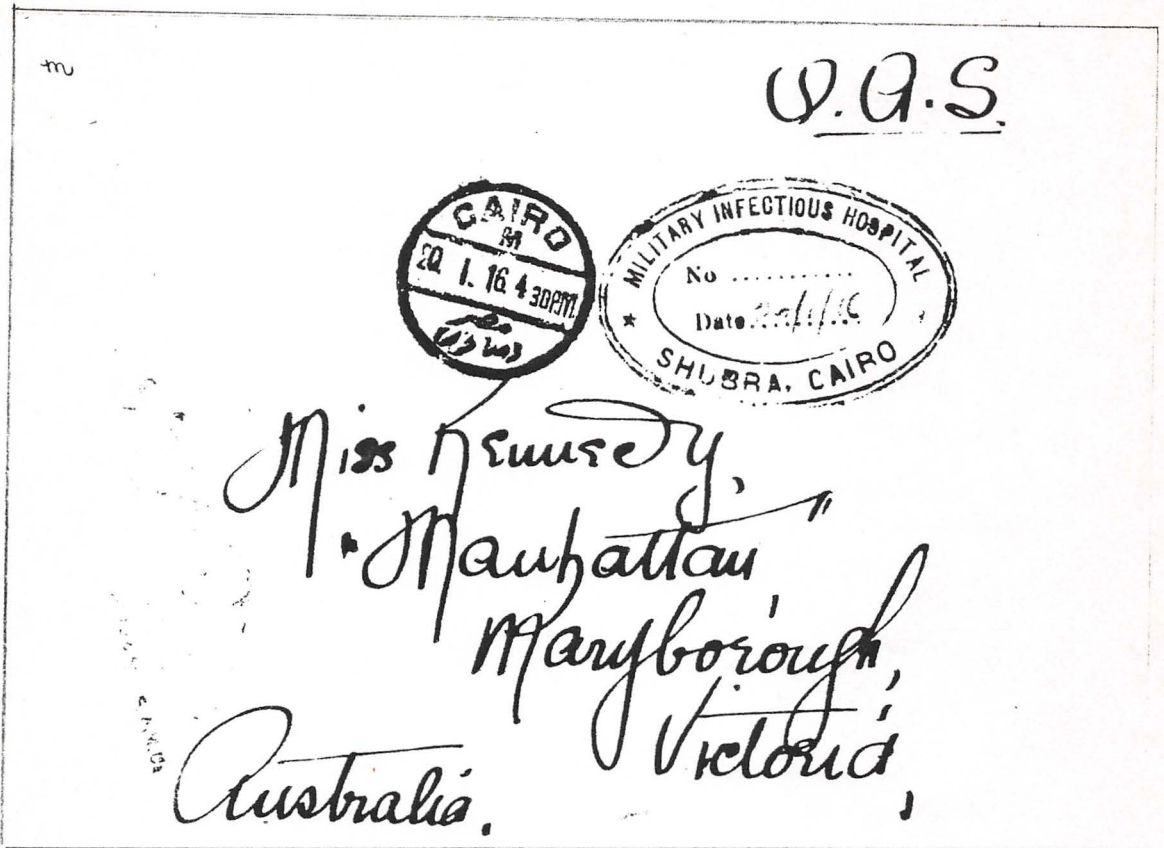 m
O.A.S.
CAIRO
M
20. 1. 16. 4 30PM
مصر
MILITARY INFECTIOUS HOSPITAL
No ............
Date 20/1/16
SHUBRA, CAIRO
Miss Kennedy,
"Manhattan",
Maryborough,
Victoria,
Australia.